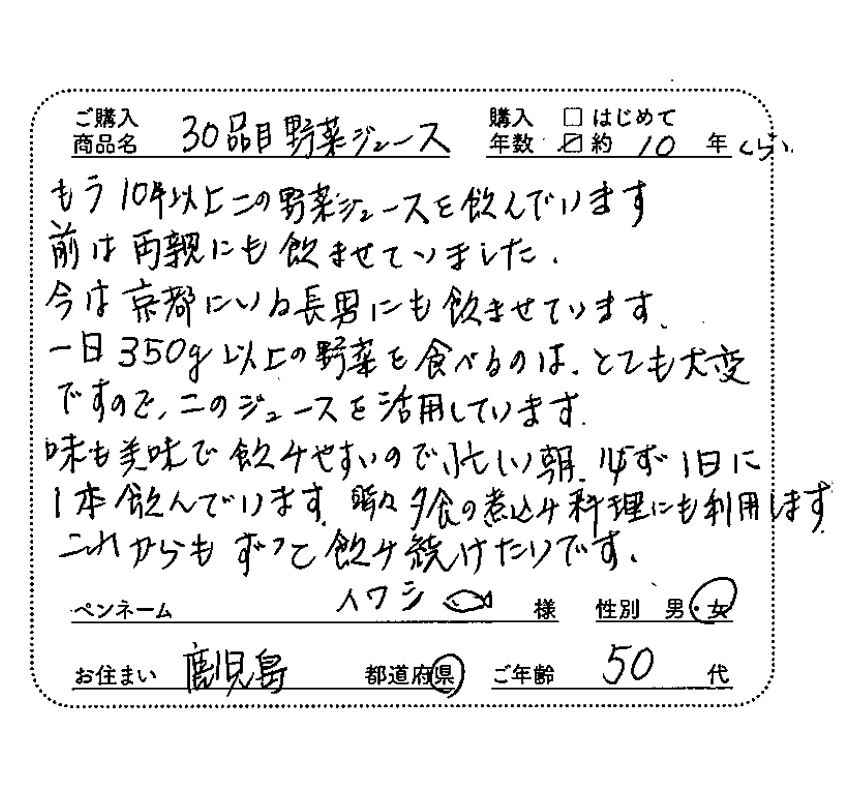 ご購入商品名 30品目野菜ジュース 購入年数 □はじめて ☑約 10 年くらい
もう10年以上この野菜ジュースを飲んでいます
前は両親にも飲ませていました.
今は京都にいる長男にも飲ませています.
一日350g以上の野菜を食べるのは、とても大変
ですので、このジュースを活用しています.
味も美味で飲みやすいので忙しい朝、必ず1日に
1本飲んでいます. 時々夕食の煮込み料理にも利用します.
これからもずっと飲み続けたいです.
ペンネーム イワシ 様 性別 男・女
お住まい 鹿児島 都道府県 ご年齢 50 代